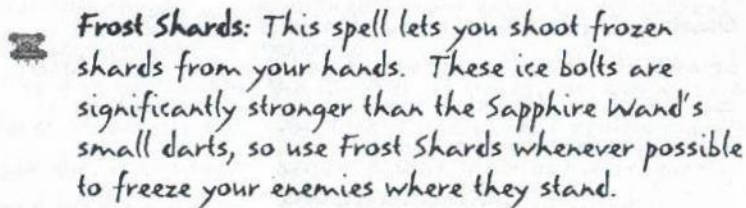 Frost Shards: This spell lets you shoot frozen
shards from your hands. These ice bolts are
significantly stronger than the Sapphire Wand's
small darts, so use Frost Shards whenever possible
to freeze your enemies where they stand.